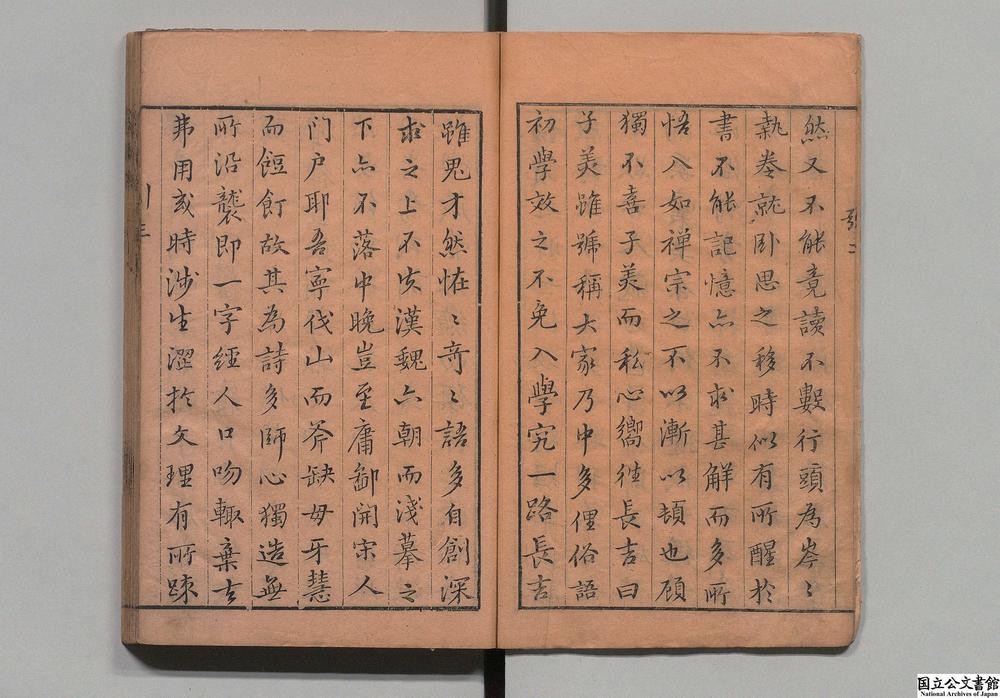 然又不能竟讀不數行頭為岑〻
執卷就臥思之移時似有所醒於
書不能記憶亦不求甚解而多所
悟入如禅宗之不以漸以頓也顧
獨不喜子美而私心嚮徃長吉曰
子美雖號稱大家乃中多俚俗語
初學效之不免入學究一路長吉
雖鬼才然恠〻竒〻語多自創深
求之上不失漢魏六朝而淺摹之
下亦不落中晚豈至庸鄙開宋人
门户耶吾寧伐山而斧缺毋牙慧
而饾飣故其為詩多師心獨造無
所沿襲即一字經人口吻輙棄去
弗用或時涉生澀於文理有所踈
國立公文書館
National Archives of Japan